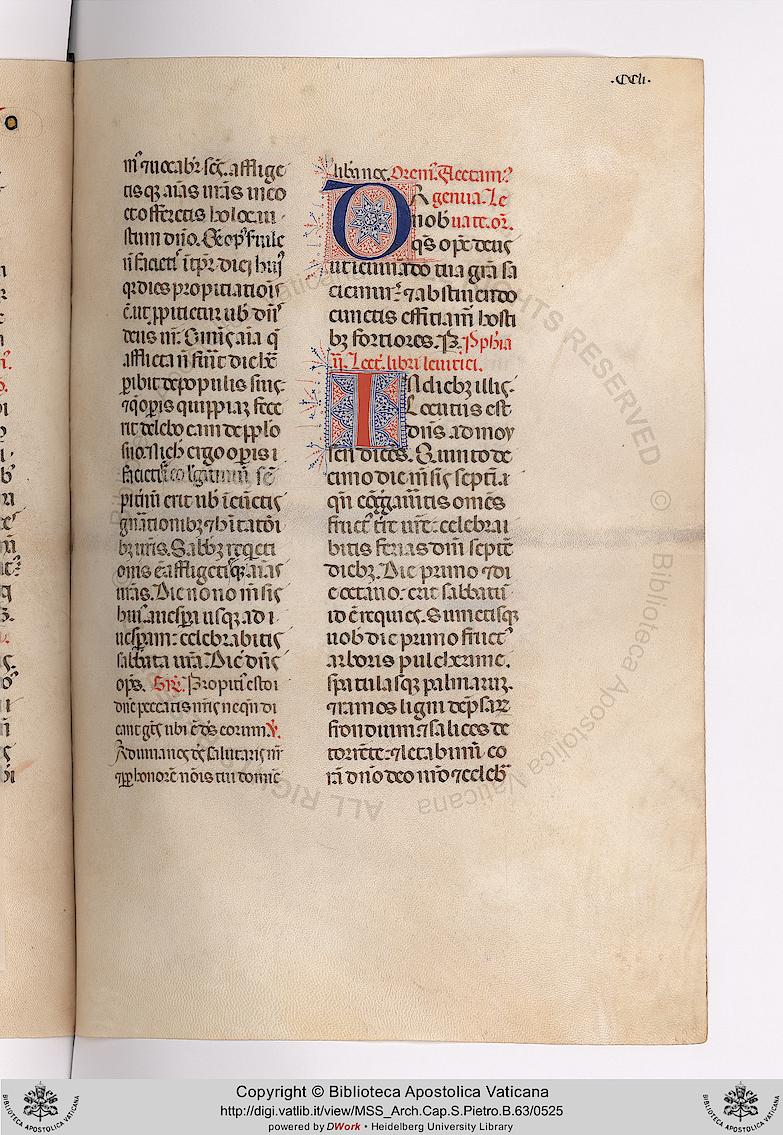 ·CCli·
mꝰ ⁊ uocabit᷑ sc̄s. afflige
tisqꝫ aīas ur̄as in eo
et offeretis holocau
stum dn̄o. Oē opꝰ seruile
nō facietis
qꝛ dies propitiationis
ē. ut ꝓpitietur uob dn̄s
deus ur̄. Omnis aīa q̄
afflicta nō fuit die hac
ꝑibit de populis suis
⁊ q̄ oꝑis quippiaꝫ fece
rit delebo eam de pp̄lo
suo. Nichil ergo oꝑis
facietis
pitnū erit uob in cunctis
gn̄ationibꝫ ⁊ habitatōi
bꝫ ur̄is. Sabbatum req̄etiōis
ē. affligetisqꝫ aīas
ur̄as. Die nono mensis
a uespera usqꝫ ad
uesꝑam: celebrabitis
sabbata ur̄a. Dicit dn̄s
ops. Gr̄. Propitiꝰ esto
dn̄e peccatis nr̄is nequando di
cant gētes ubi ē dēs eorum. ℣.
Adiuua nos dēs salutaris nr̄
⁊ ꝓpter honorē nōis tui domine
libera nos. Oremꝰ. Flectamꝰ
genua. Le
uate. or̄.
qs oīpc deus
ut ieiunādo tua gr̄a sa
ciemur: ⁊ abstinendo
cunctis efficiamur hosti
bꝫ fortiores. P. Pphia
Lect. libri leuitici.
In diebꝫ illis
Locutus est
dn̄s ad moy
sen dicēs. Quintode
cimo die mēsis septīi
qn̄ cōgregaueritis omēs
fructꝰ terre ur̄e: celebra
bitis ferias dn̄i septē
diebꝫ. Die primo ⁊ di
e octauo: erit sabbatū
id ē requies. Sumetisqꝫ
uob die primo fructꝰ
arboris pulcherrime.
spatulasqꝫ palmaruꝫ.
⁊ ramos ligni densarꝫ
frondium ⁊ salices de
torrēte: ⁊ letabimini co
rā dn̄o deo ur̄o ⁊ celeb
ALL RIGHTS RESERVED © Biblioteca Apostolica Vaticana
BIBLIOTECA APOSTOLICA VATICANA
Copyright © Biblioteca Apostolica Vaticana
http://digi.vatlib.it/view/MSS_Arch.Cap.S.Pietro.B.63/0525
powered by DWork • Heidelberg University Library
BIBLIOTECA APOSTOLICA VATICANA